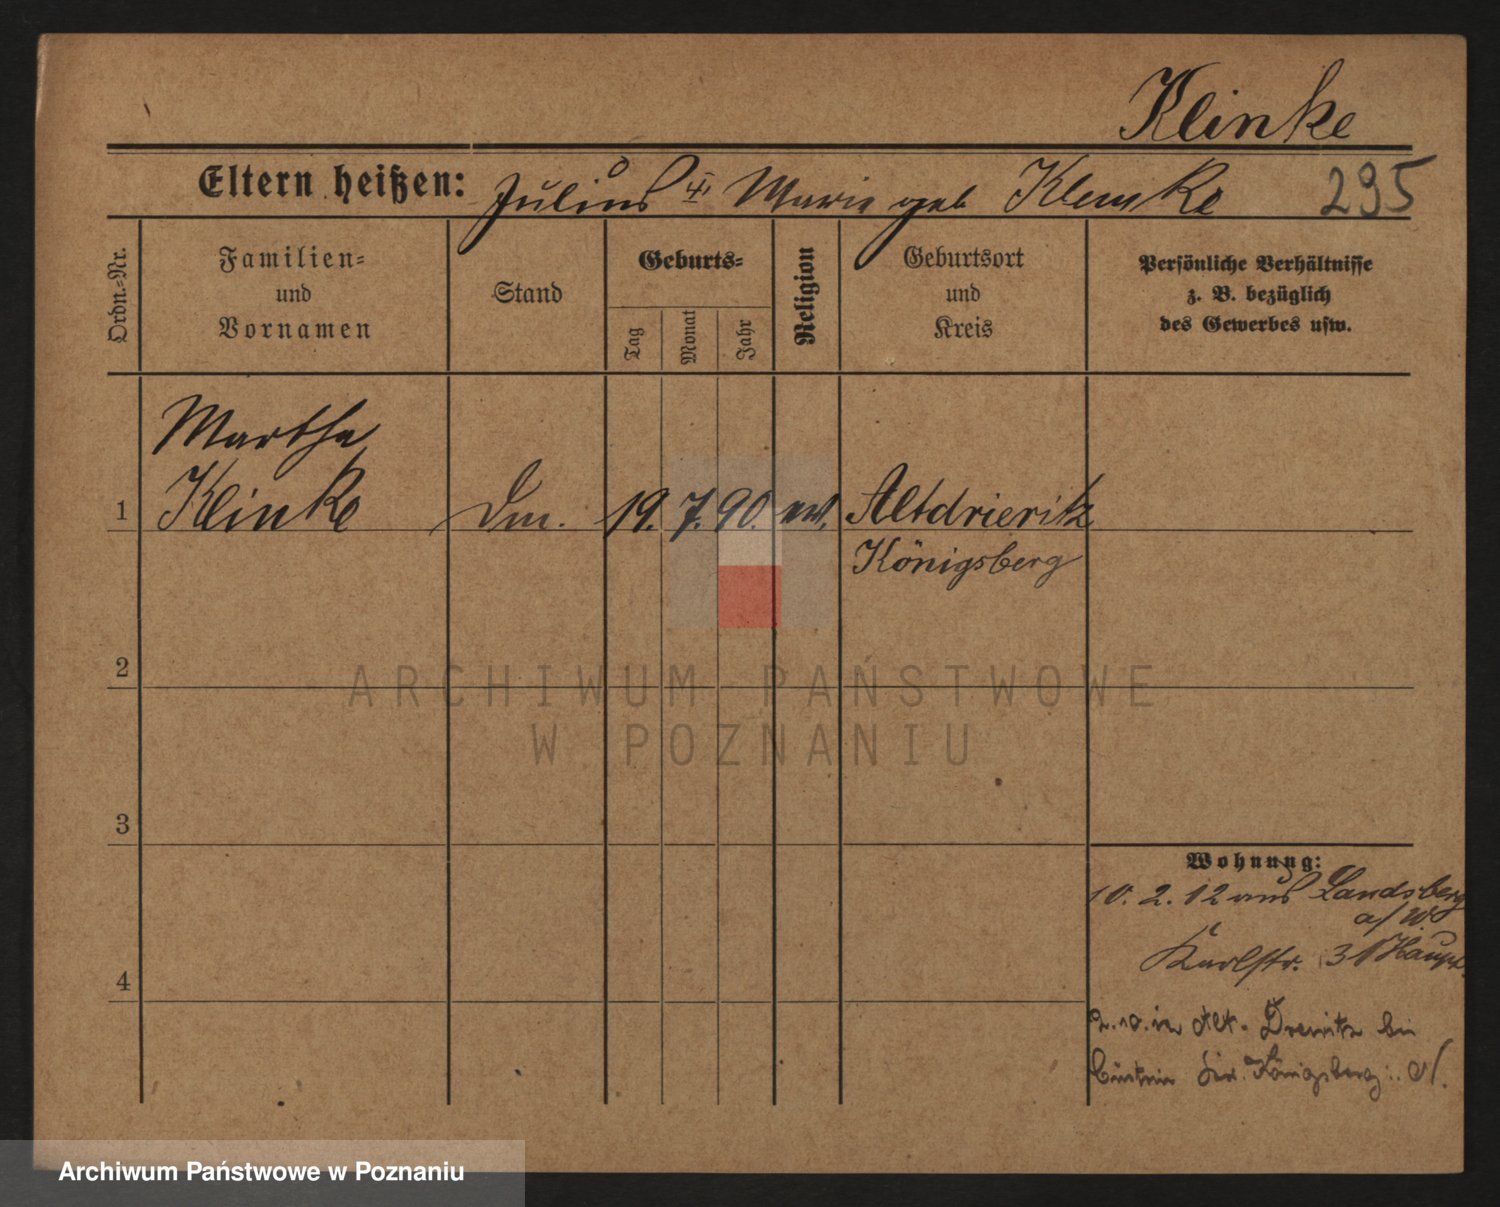 Klinke
Eltern heißen: Julius u Marie geb Klemke 295
Ordn.-Nr.
Familien-
und
Vornamen
Stand
Geburts-
Tag
Monat
Jahr
Religion
Geburtsort
und
Kreis
Persönliche Verhältnisse
z. B. bezüglich
des Gewerbes usw.
Martha
1 Klinke 19. 7. 90. ev. Altdrieritz
Königsberg
2
ARCHIWUM PAŃSTWOWE
W POZNANIU
3
Wohnung:
10. 2. 12 aus Landsberg
a/W
Karlstr. 31 Haupt.
4
Alt-Drewitz bei
Cüstrin Königsberg N.
Archiwum Państwowe w Poznaniu